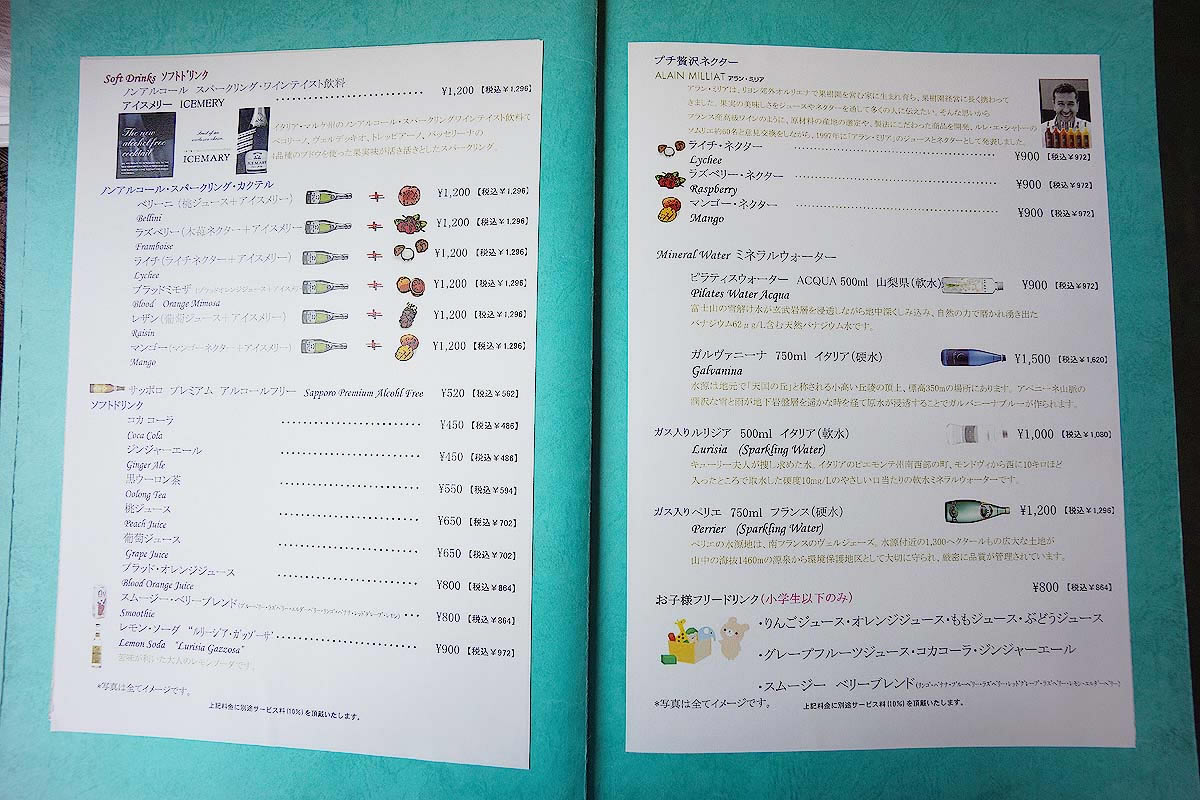 Soft Drinks ソフトドリンク
ノンアルコール スパークリング・ワインテイスト飲料
アイスメリー ICEMERY ¥1,200 【税込¥1,296】
The new
alcohol free
cocktail
ICEMARY
イタリア・マルケ州のノンアルコール・スパークリングワインテイスト飲料で
ペコリーノ、ヴェルデッキオ、トレッビアーノ、パッセリーナの
4品種のブドウを使った果実味が活き活きとしたスパークリング。
ノンアルコール・スパークリング・カクテル
ベリーニ(桃ジュース+アイスメリー) + ¥1,200 【税込¥1,296】
Bellini
ラズベリー(木苺ネクター+アイスメリー + ¥1,200 【税込¥1,296】
Framboise
ライチ(ライチネクター+アイスメリー) + ¥1,200 【税込¥1,296】
Lychee
ブラッドミモザ(ブラッドオレンジジュース+アイスメ + ¥1,200 【税込¥1,296】
Blood Orange Mimosa
レザン(葡萄ジュース+アイスメリー) + ¥1,200 【税込¥1,296】
Raisin
マンゴー(マンゴーネクター+アイスメリー) + ¥1,200 【税込¥1,296】
Mango
サッポロ プレミアム アルコールフリー Sapporo Premium Alcohl Free ¥520 【税込¥562】
ソフトドリンク
コカ コーラ ¥450 【税込¥486】
Coca Cola
ジンジャーエール ¥450 【税込¥486】
Ginger Ale
黒ウーロン茶 ¥550 【税込¥594】
Oolong Tea
桃ジュース ¥650 【税込¥702】
Peach Juice
葡萄ジュース ¥650 【税込¥702】
Grape Juice
ブラッド・オレンジジュース ¥800 【税込¥864】
Blood Orange Juice
スムージー・ベリーブレンド ¥800 【税込¥864】
Smoothie
レモン・ソーダ “ルリージア・ガッザーサ” ¥900 【税込¥972】
Lemon Soda “Lurisia Gazzosa”
苦味が利いた大人のレモンソーダです。
*写真は全てイメージです。
上記料金に別途サービス料(10%)を頂戴いたします。
プチ贅沢ネクター
ALAIN MILLIAT アラン・ミリア
アラン・ミリアは、リヨン郊外オルリエナで果樹園を営む家に生まれ育ち、果樹園経営に長く携わって
きました。果実の美味しさをジュースやネクターを通して多くの人に伝えたい、そんな思いから
フランス産高級ワインのように、原材料の産地の選定や、製法にこだわった商品を開発。ルレ・エ・シャトーの
ソムリエ約60名と意見交換をしながら、1997年に「アラン・ミリア」のジュースとネクターとして発売しました。
ライチ・ネクター ¥900 【税込¥972】
Lychee
ラズベリー・ネクター ¥900 【税込¥972】
Raspberry
マンゴー・ネクター ¥900 【税込¥972】
Mango
Mineral Water ミネラルウォーター
ピラティスウォーター ACQUA 500ml 山梨県(軟水) ¥900 【税込¥972】
Pilates Water Acqua
富士山の雪解け水が玄武岩層を浸透しながら地中深くしみ込み、自然の力で磨かれ湧き出た
バナジウム62μg/L含む天然バナジウム水です。
ガルヴァニーナ 750ml イタリア(硬水) ¥1,500 【税込¥1,620】
Galvanina
水源は地元で「天国の丘」と称される小高い丘陵の頂上、標高350mの場所にあります。アペニーネ山脈の
贅沢な雪と雨が地下岩盤層を遥かな時を経て原水が浸透することでガルバニーナブルーが作られます。
ガス入りルリジア 500ml イタリア(軟水) ¥1,000 【税込¥1,080】
Lurisia (Sparkling Water)
キューリー夫人が捜し求めた水。イタリアのピエモンテ州南西部の町、モンドヴィから西に10キロほど
入ったところで取水した硬度10mg/Lのやさしい口当たりの軟水ミネラルウォーターです。
ガス入りペリエ 750ml フランス(硬水) ¥1,200 【税込¥1,296】
Perrier (Sparkling Water)
ペリエの水源地は、南フランスのヴェルジェーズ。水源付近の1,300ヘクタールもの広大な土地が
山中の海抜1460mの源泉から環境保護地区として大切に守られ、厳密に品質が管理されています。
¥800 【税込¥864】
お子様フリードリンク(小学生以下のみ)
・りんごジュース・オレンジジュース・ももジュース・ぶどうジュース
・グレープフルーツジュース・コカコーラ・ジンジャーエール
・スムージー ベリーブレンド(リンゴ・バナナ・ブルーベリー・ラズベリー・レッドグレープ・ラズベリー・レモン・エルダーベリー)
*写真は全てイメージです。 上記料金に別途サービス料(10%)を頂戴いたします。